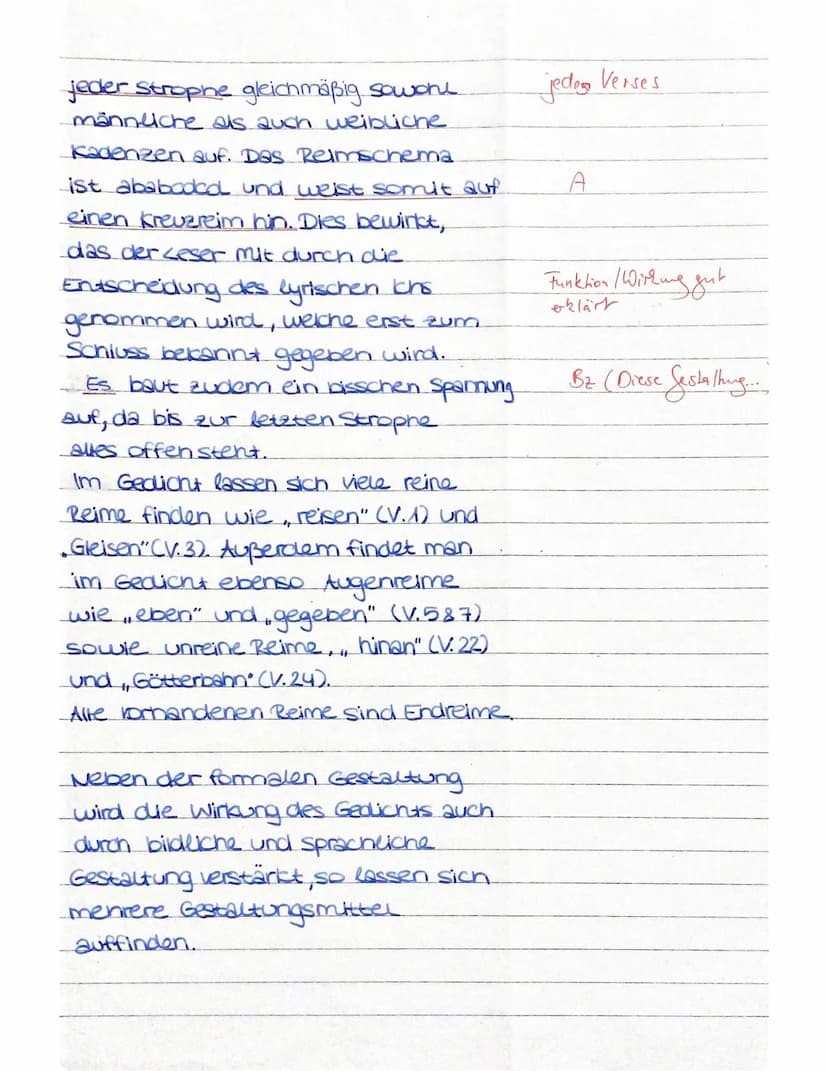 jeder Strophe gleichmäßig sowohl
jedes Verses
männliche als auch weibliche
Kadenzen auf. Das Reimschema
ist ababcdcd und weist somit auf
A
einen Kreuzreim hin. Dies bewirkt,
das der Leser mit durch die
Entscheidung des lyrischen Ichs
Funktion/Wirkung gut
erklärt
genommen wird, welche erst zum
Schluss bekannt gegeben wird.
Es baut zudem ein bisschen Spannung
Bz (Diese Gestaltung...)
auf, da bis zur letzten Strophe
alles offen steht.
Im Gedicht lassen sich viele reine
Reime finden wie „reisen" (V.1) und
„Gleisen" (V.3). Außerdem findet man
im Gedicht ebenso Augenreime
wie „eben" und „gegeben" (V.5&7)
sowie unreine Reime, „hinan" (V.22)
und „Götterbahn" (V.24).
Alle vorhandenen Reime sind Endreime.
Neben der formalen Gestaltung
wird die Wirkung des Gedichts auch
durch bildliche und sprachliche
Gestaltung verstärkt, so lassen sich
mehrere Gestaltungsmittel
auffinden.